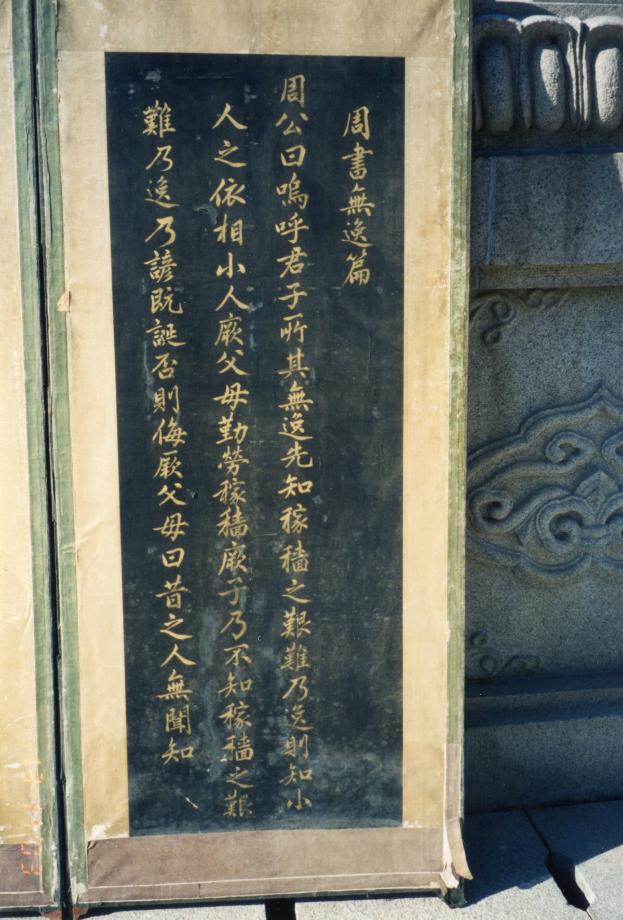 周書無逸篇
周公曰嗚呼君子所其無逸先知稼穡之艱難乃逸則知小
人之依相小人厥父母勤勞稼穡厥子乃不知稼穡之艱
難乃逸乃諺既誕否則侮厥父母曰昔之人無聞知